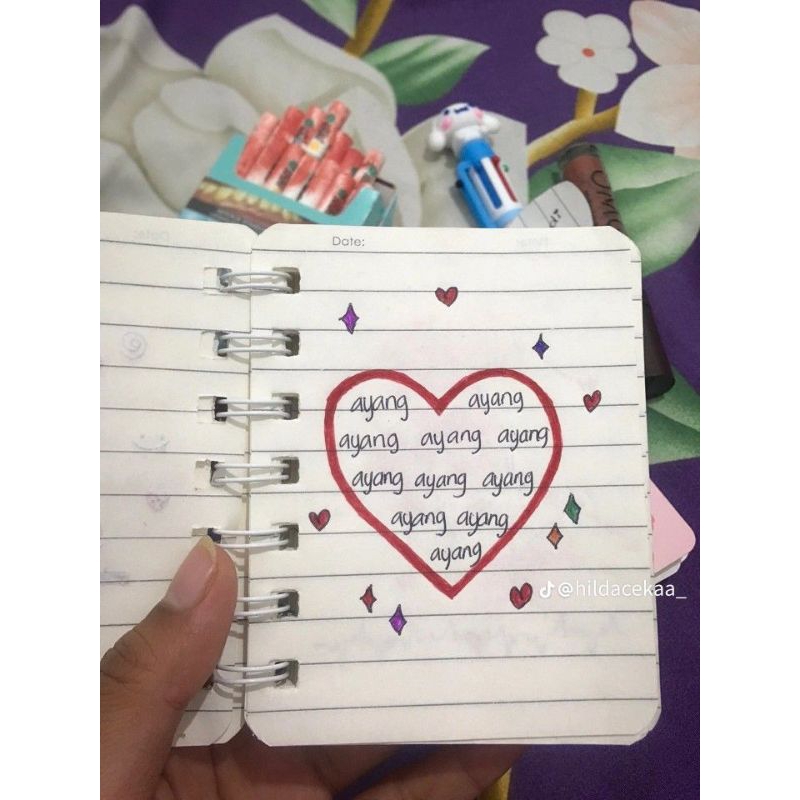 Date:
ayang ayang
ayang ayang ayang
ayang ayang ayang
ayang ayang
ayang
@hildacekaa_